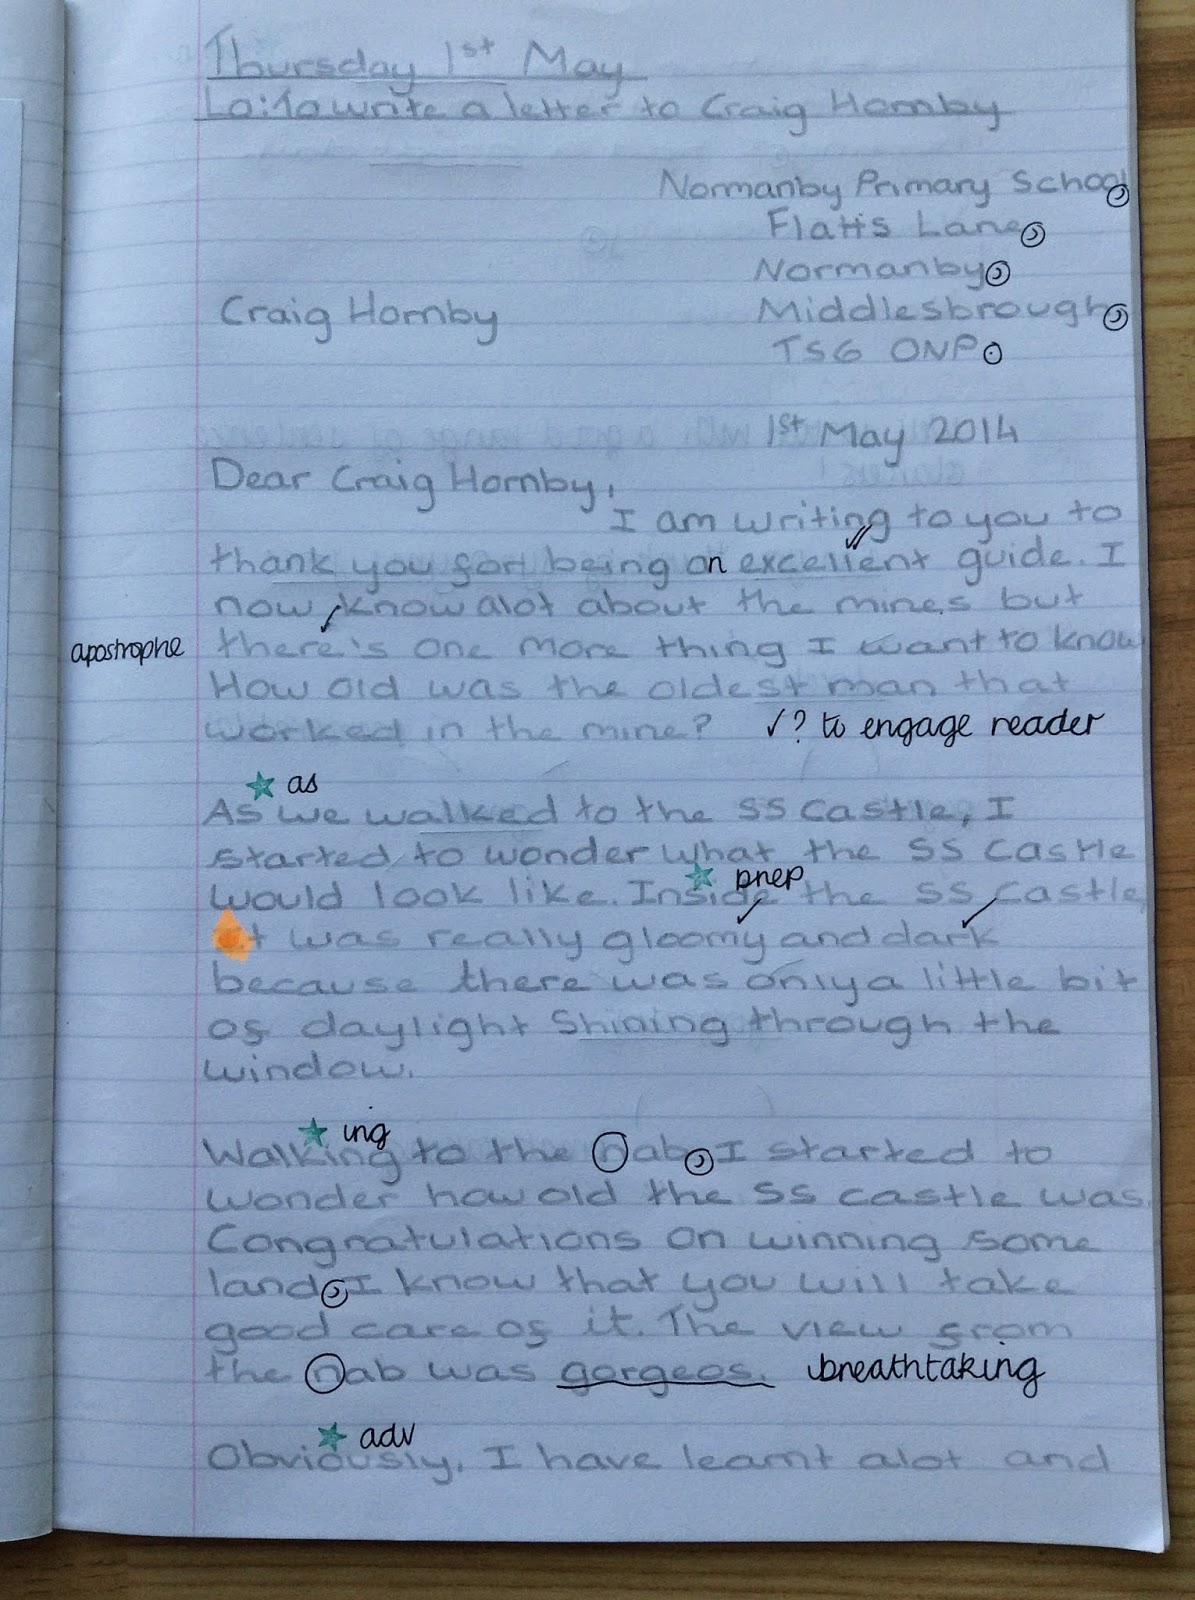 Thursday 1st May
Lo: To write a letter to Craig Hornby
Normanby Primary School,
Flatts Lane,
Normanby,
Craig Hornby Middlesbrough,
TS6 ONP.
1st May 2014
Dear Craig Hornby,
I am writing to you to
thank you for being an excellent guide. I
now know alot about the mines but
apostrophe there's one more thing I want to know
How old was the oldest man that
worked in the mine? ✓? to engage reader
as
As we walked to the SS Castle, I
started to wonder what the SS Castle
prep
would look like. Inside the SS Castle,
it was really gloomy and dark
because there was only a little bit
of daylight Shining through the
window.
ing
Walking to the nab, I started to
wonder how old the SS castle was.
Congratulations on winning some
land, I know that you will take
good care of it. The view from
the nab was gorgeos. breathtaking
adv
Obviously, I have learnt alot and